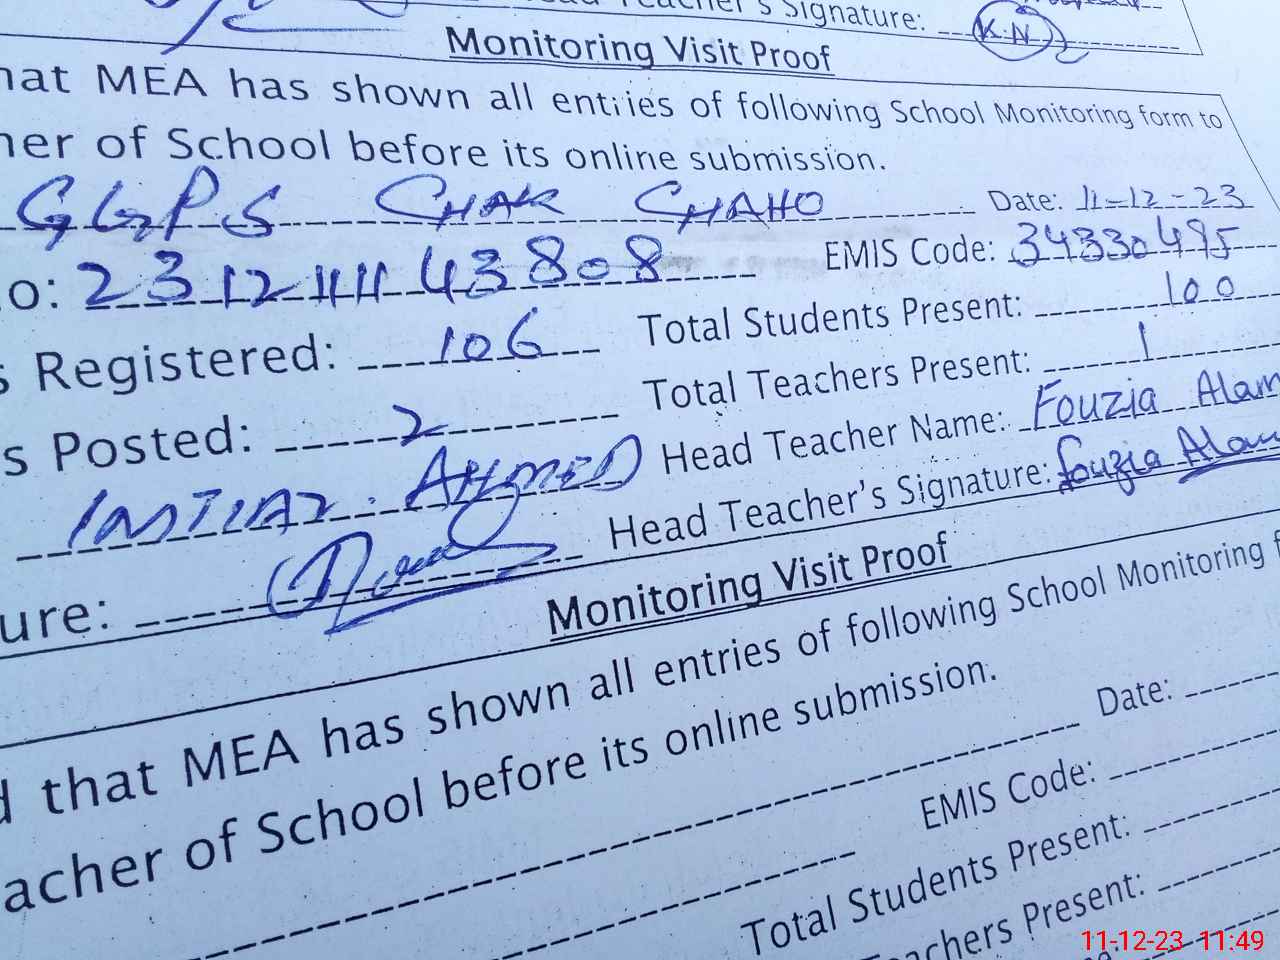 Head Teacher's Signature: K.N
Monitoring Visit Proof
hat MEA has shown all entries of following School Monitoring form to
her of School before its online submission.
GGPS CHAK CHAHO Date: 11-12-23
o: 2312111143808 EMIS Code: 34330495
s Registered: 106 Total Students Present: 100
s Posted: 2 Total Teachers Present: 1
IMTIAZ AHMED Head Teacher Name: Fouzia Alam
ure: Head Teacher's Signature: Fouzia Alam
Monitoring Visit Proof
d that MEA has shown all entries of following School Monitoring f
eacher of School before its online submission.
Date:
EMIS Code:
Total Students Present:
Teachers Present:
11-12-23 11:49